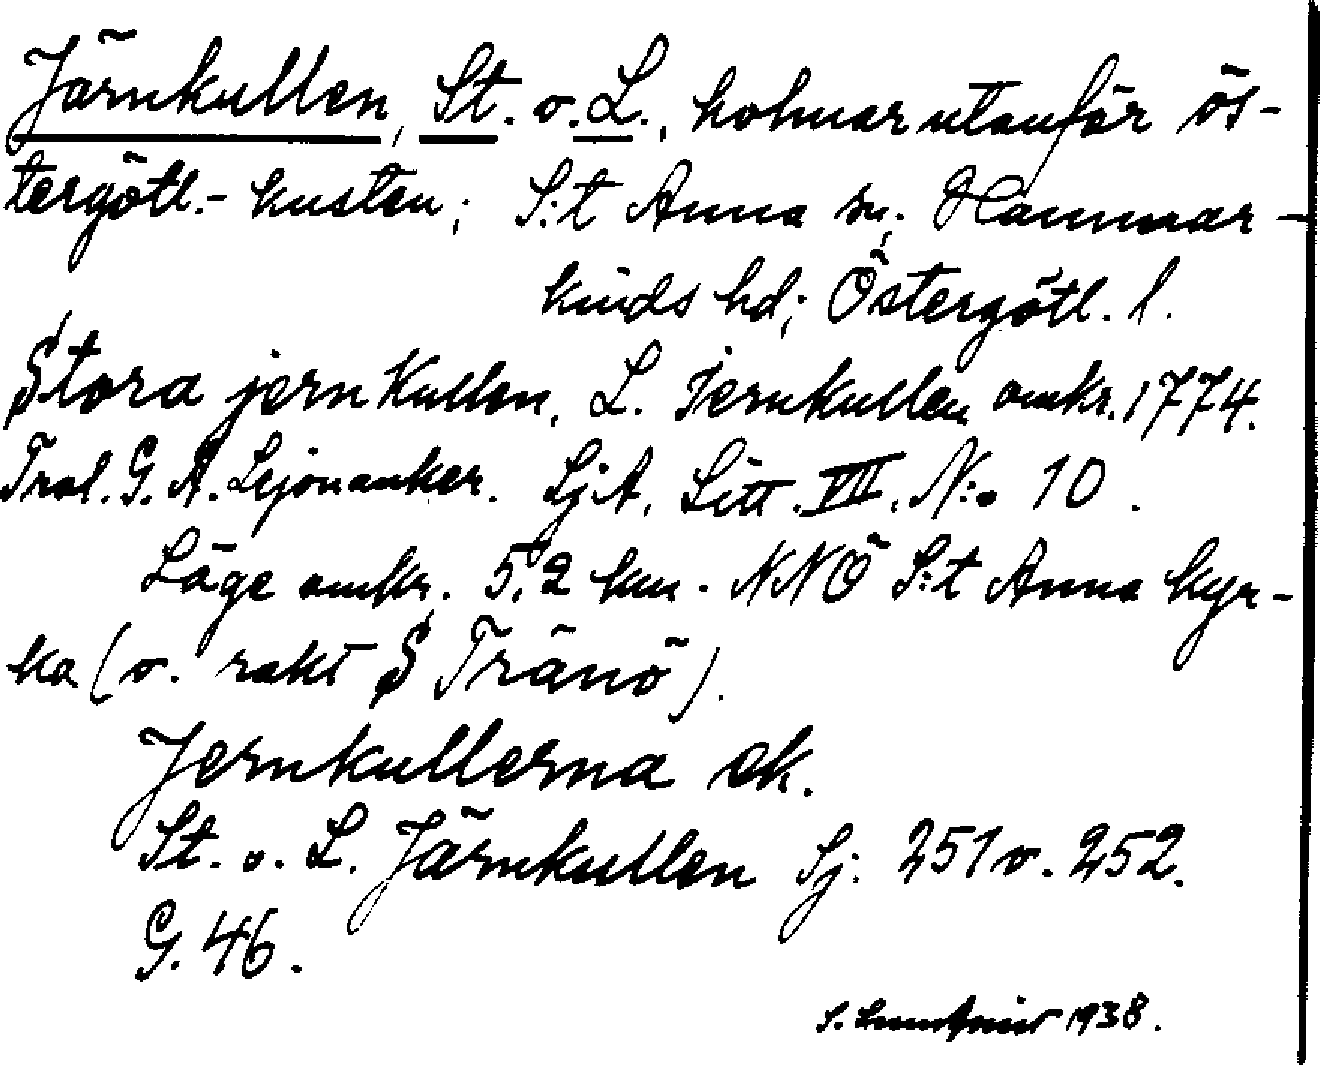 Järnkullen, St. o. L., holmar utanför ös-
tergötl.-kusten; S:t Anna sn; Hammar-
kinds hd; Östergötl. l.
Stora jern Kullen, L. Jernkullen omkr. 1774.
G. A. Lejonanker. SjA. Litt. VII. N:o 10.
Läge omkr. 5,2 km. NNO S:t Anna kyr-
ka (o. rakt S Tränö).
Jernkullerna ek.
St. o. L. Järnkullen Sj. 251 o. 252.
G. 46.
S. 1938.